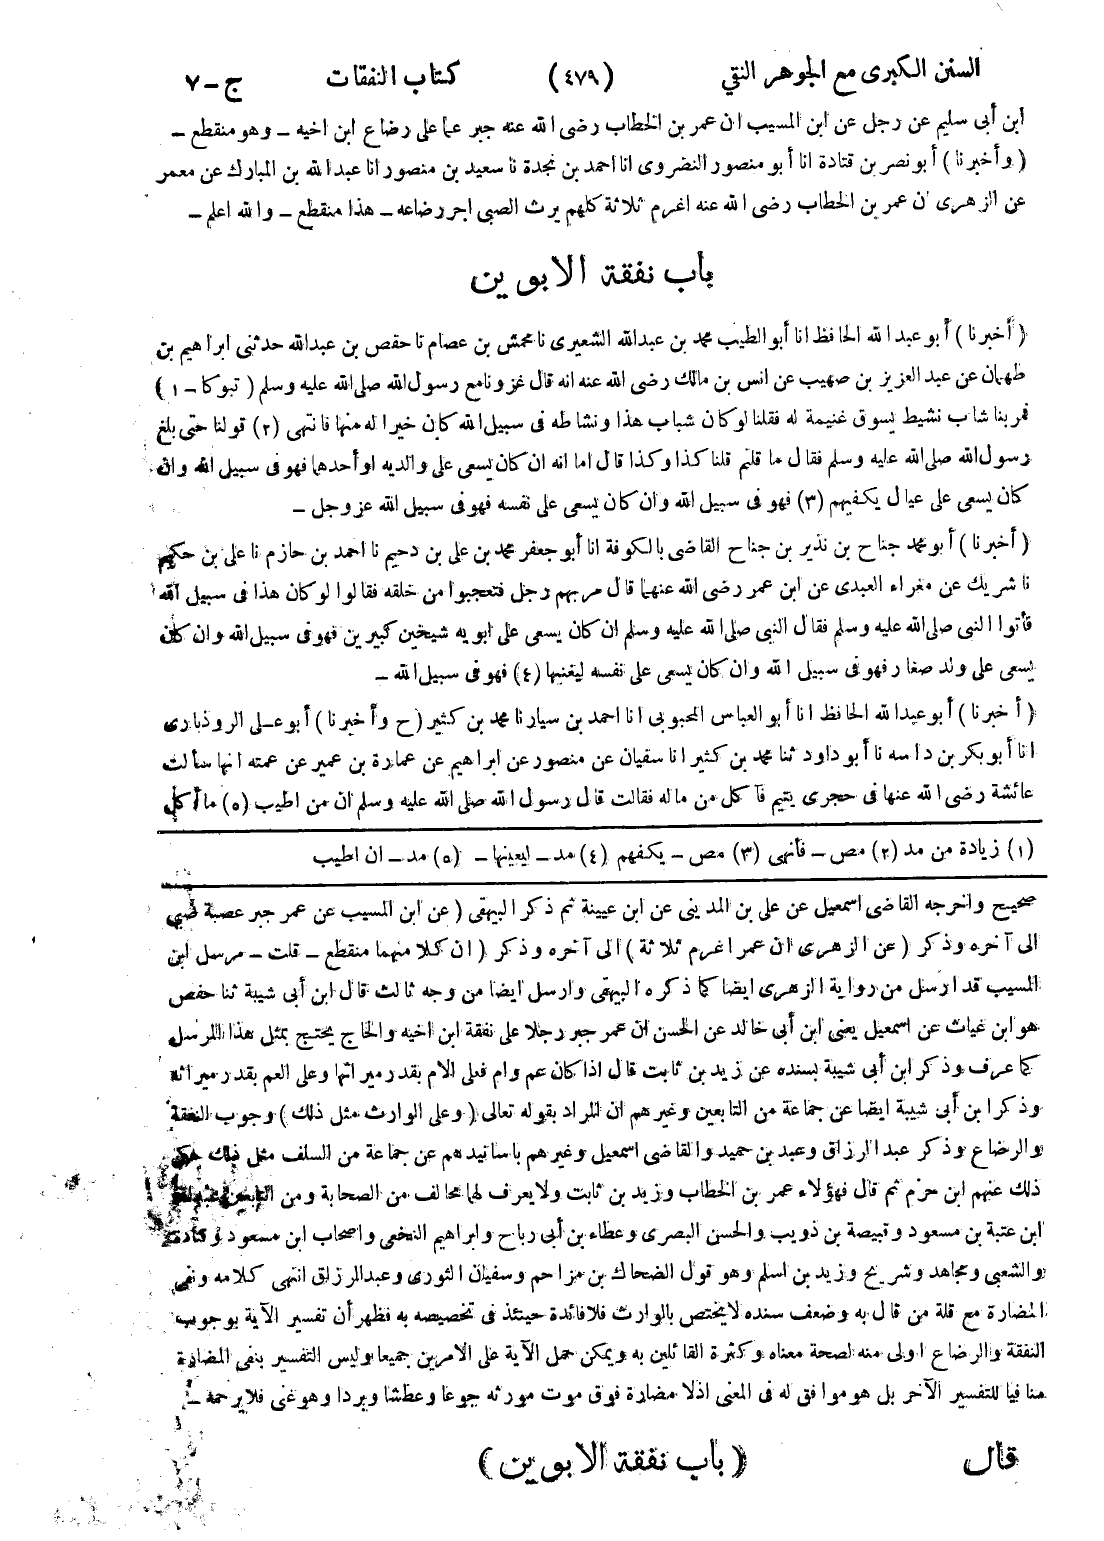 السنن الكبرى مع الجوهر النقي (٤٧٩) كتاب النفقات ج-٧
ابن أبى سليم عن رجل عن ابن المسيب ان عمر بن الخطاب رضى الله عنه جبر عما على رضاع ابن اخيه - وهو منقطع -
(وأخبرنا) أبو نصر بن قتادة انا أبو منصور النضروى انا احمد بن نجدة نا سعيد بن منصور انا عبد الله بن المبارك عن معمر
عن الزهرى ان عمر بن الخطاب رضى الله عنه اغرم ثلاثة كلهم يرث الصبى اجر رضاعه - هذا منقطع - والله اعلم -
باب نفقة الابوين
(أخبرنا) أبو عبد الله الحافظ انا أبو الطيب محمد بن عبدالله الشعيرى نا محمش بن عصام نا حفص بن عبدالله حدثنى ابراهيم بن
طهمان عن عبد العزيز بن صهيب عن انس بن مالك رضى الله عنه انه قال غزونا مع رسول الله صلى الله عليه وسلم (تبوكا - ١)
فمر بنا شاب نشيط يسوق غنيمة له فقلنا لو كان شباب هذا ونشاطه فى سبيل الله كان خيرا له منها فانتهى (٢) قولنا حتى بلغ
رسول الله صلى الله عليه وسلم فقال ما قلتم قلنا كذا وكذا قال اما انه ان كان يسعى على والديه او أحدهما فهو فى سبيل الله وان
كان يسعى على عيال يكفيهم (٣) فهو فى سبيل الله وان كان يسعى على نفسه فهو فى سبيل الله عز وجل -
(أخبرنا) أبو محمد جناح بن نذير بن جناح القاضى بالكوفة انا أبو جعفر محمد بن على بن دحيم نا احمد بن حازم نا على بن حكيم
نا شريك عن مغراء العبدى عن ابن عمر رضى الله عنهما قال مر بهم رجل فتعجبوا من خلقه فقالوا لو كان هذا فى سبيل الله
فأتوا النبى صلى الله عليه وسلم فقال النبى صلى الله عليه وسلم ان كان يسعى على ابويه شيخين كبيرين فهو فى سبيل الله وان كان
يسعى على ولد صغار فهو فى سبيل الله وان كان يسعى على نفسه ليغنيها (٤) فهو فى سبيل الله -
(أخبرنا) أبو عبدالله الحافظ انا أبو العباس المحبوبى انا احمد بن سيار نا محمد بن كثير (ح وأخبرنا) أبو على الروذبارى
انا أبو بكر بن داسه نا أبو داود ثنا محمد بن كثير انا سفيان عن منصور عن ابراهيم عن عمارة بن عمير عن عمته انها سألت
عائشة رضى الله عنها فى حجرى يتيم فآكل من ماله فقالت قال رسول الله صلى الله عليه وسلم ان من اطيب (٥) ما أكل
(١) زيادة من مد (٢) مص - فأنهى (٣) مص - يكفهم (٤) مد - ليعينها - (٥) مد - ان اطيب
صحيح واخرجه القاضى اسمعيل عن على بن المدينى عن ابن عيينة ثم ذكر البيهقى (عن ابن المسيب عن عمر جبر عصبة صبى
الى آخره وذكر (عن الزهرى ان عمر اغرم ثلاثة) الى آخره وذكر (ان كلا منهما منقطع - قلت - مرسل ابن
المسيب قد ارسل من رواية الزهرى ايضا كما ذكره البيهقى وارسل ايضا من وجه ثالث قال ابن أبى شيبة ثنا حفص
هو ابن غياث عن اسمعيل يعنى ابن أبى خالد عن الحسن ان عمر جبر رجلا على نفقة ابن اخيه والحاج يحتج بمثل هذا المرسل
كما عرف وذكر ابن أبى شيبة بسنده عن زيد بن ثابت قال اذا كان عم وام فعلى الام بقدر ميراثها وعلى العم بقدر ميراثه
وذكر ابن أبى شيبة ايضا عن جماعة من التابعين وغيرهم ان المراد بقوله تعالى (وعلى الوارث مثل ذلك) وجوب النفقة
والرضاع وذكر عبد الرزاق وعبد بن حميد والقاضى اسمعيل وغيرهم باسانيدهم عن جماعة من السلف مثل ذلك حكى
ذلك عنهم ابن حزم ثم قال فهؤلاء عمر بن الخطاب وزيد بن ثابت ولا يعرف لهما مخالف من الصحابة ومن التابعين
ابن عتبة بن مسعود وقبيصة بن ذويب والحسن البصرى وعطاء بن أبى رباح وابراهيم النخعى واصحاب ابن مسعود وقتادة
والشعبى ومجاهد وشريح وزيد بن اسلم وهو قول الضحاك بن مزاحم وسفيان الثورى وعبدالرزاق انتهى كلامه ونفى
المضارة مع قلة من قال به وضعف سنده لا يختص بالوارث فلا فائدة حينئذ فى تخصيصه به فظهر أن تفسير الآية بوجوب
النفقة والرضاع اولى منه لصحة معناه وكثرة القائلين به ويمكن حمل الآية على الامرين جميعا وليس التفسير بنفى المضارة
منافيا للتفسير الآخر بل هو موافق له فى المعنى اذ لا مضارة فوق موت مورثه جوعا وعطشا وبردا وهو غنى فلا يرحمه -
قال (باب نفقة الابوين)